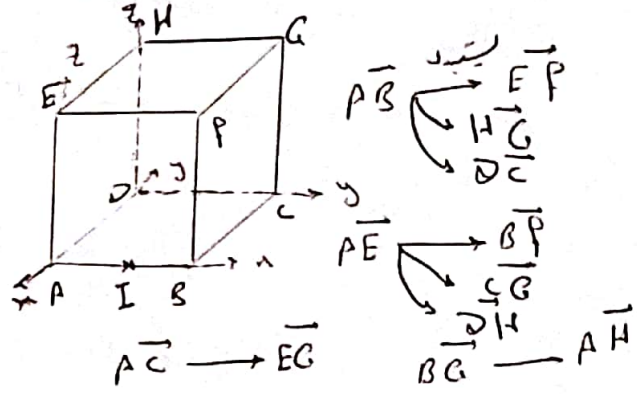 Z H
G
Z
E
P
D y
C y
x A I B x
يستبدل
AB → EP
HG
DC
AE → BP
CG
DH
AC → EG
BG — AH